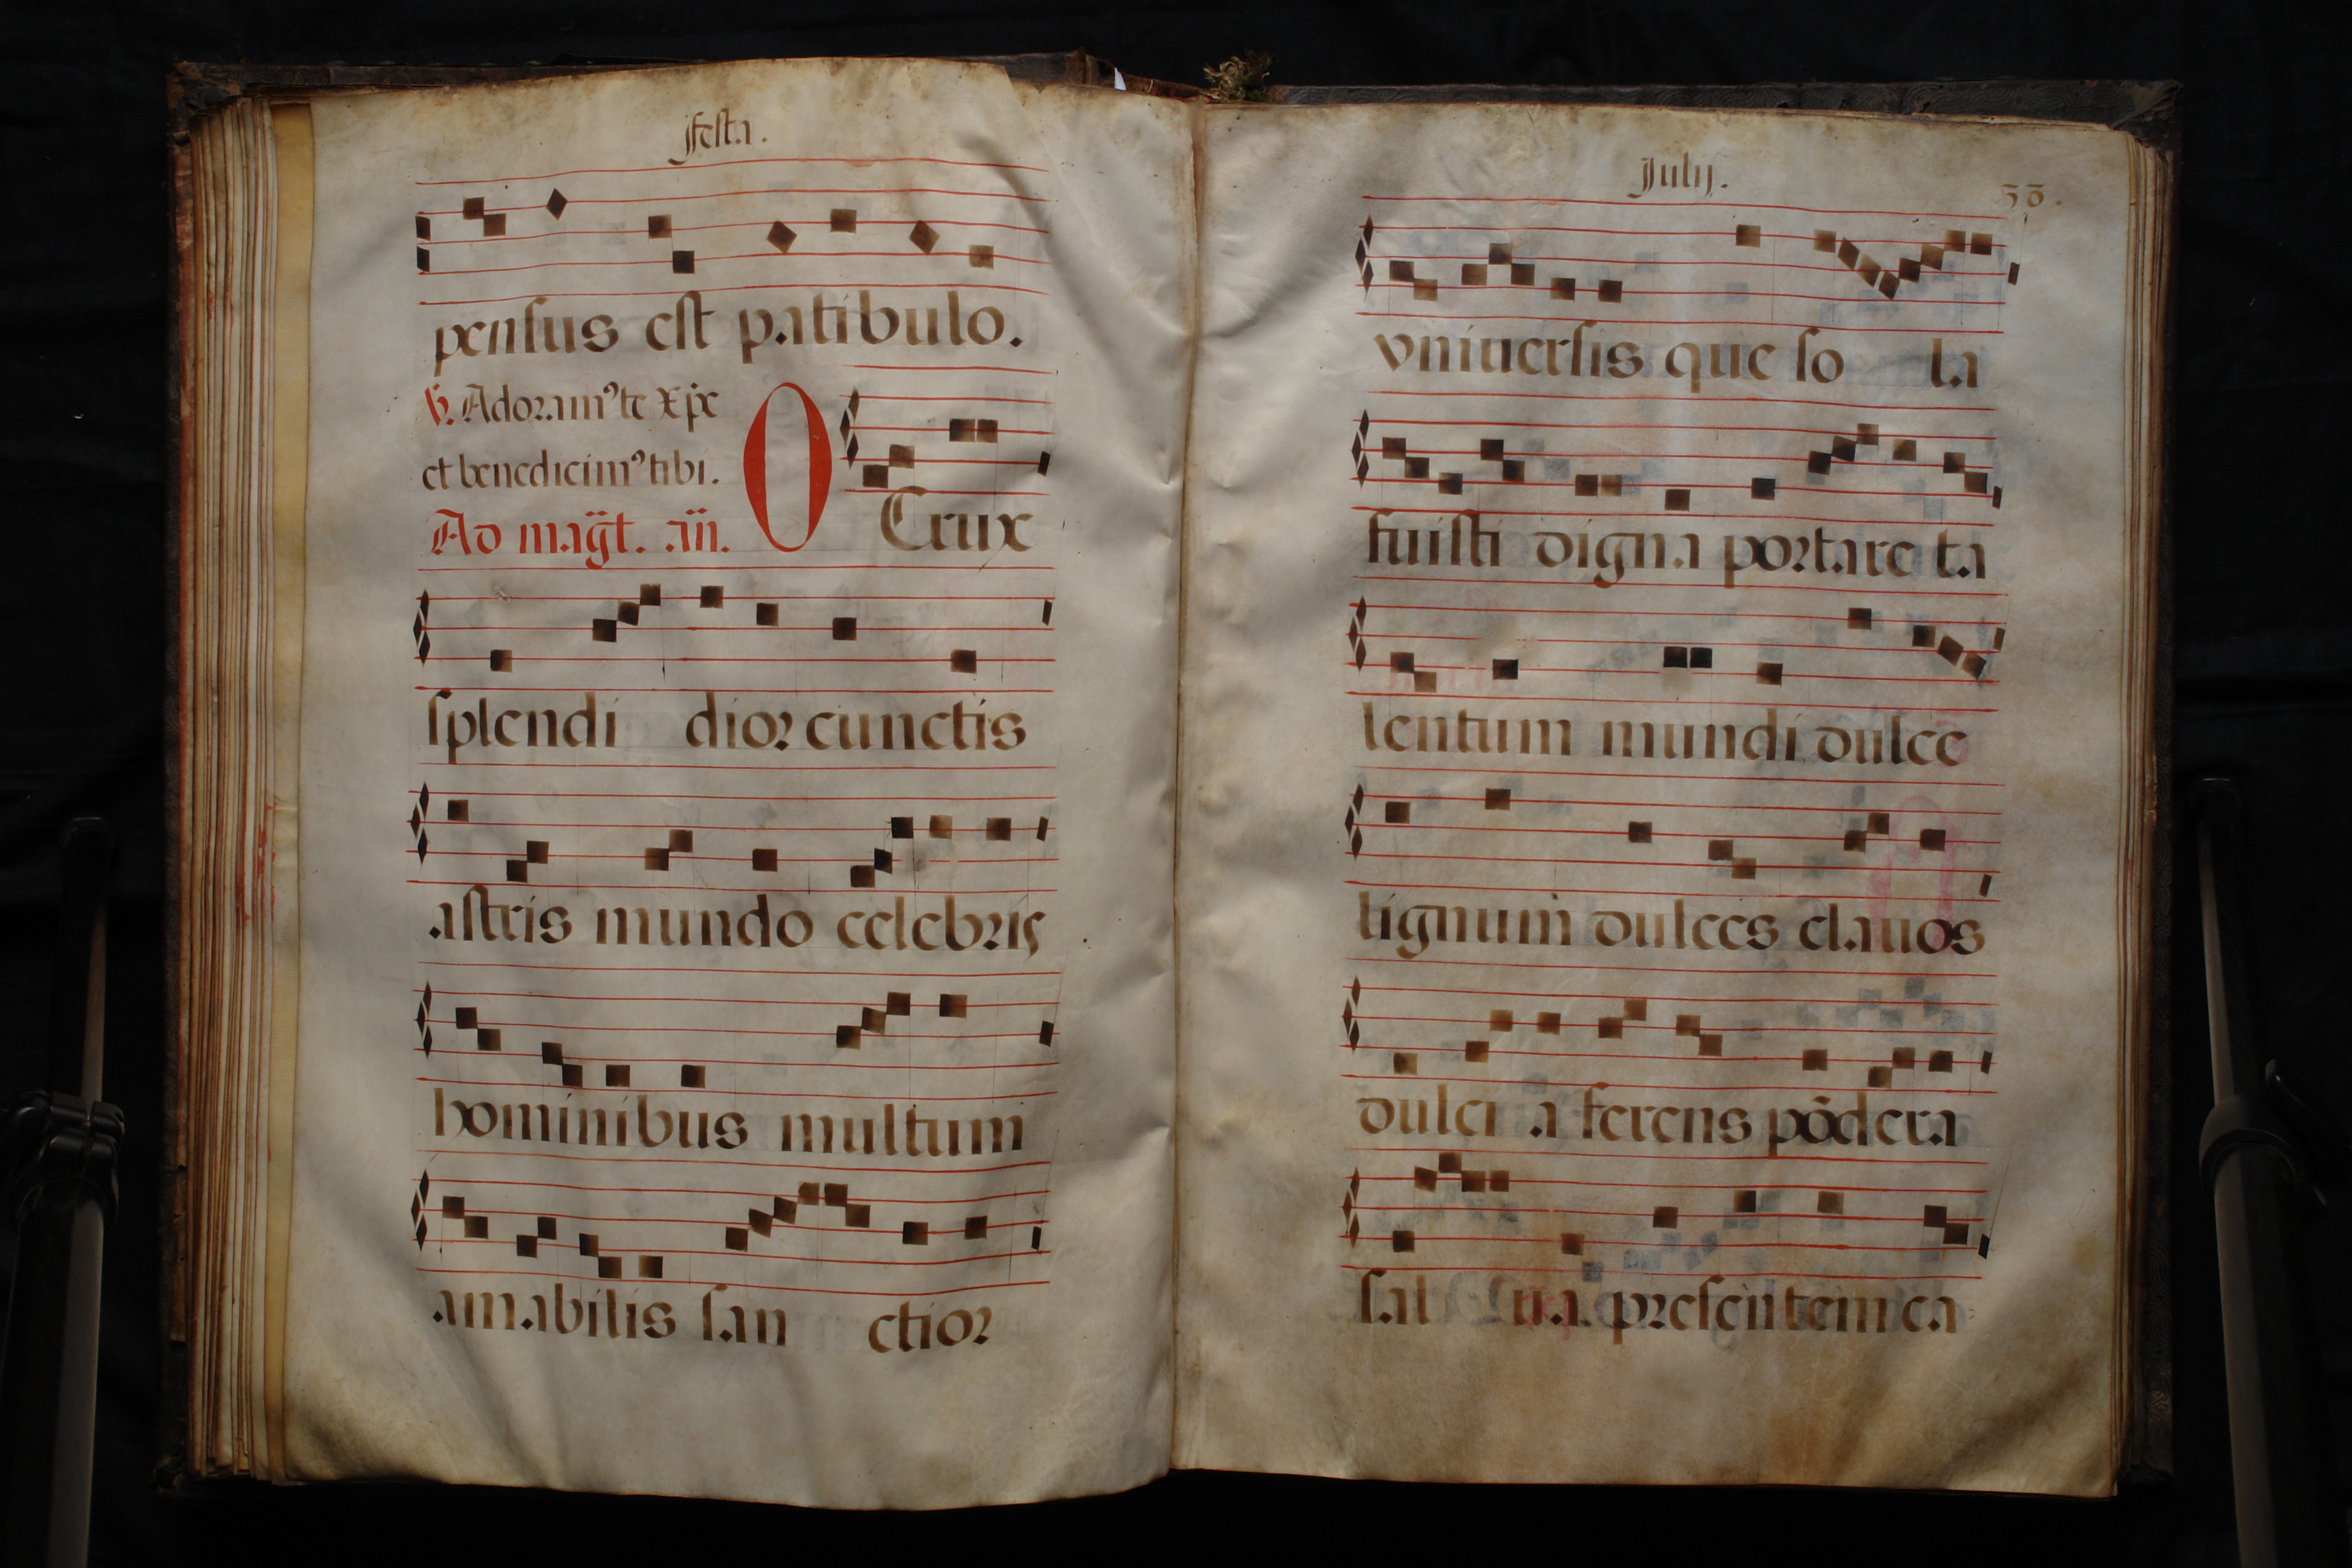 festa.
pensus est patibulo.
℣. Adoram⁹ te xp̄e
et benedicim⁹ tibi.
Ad mag̃t. añ. O
Crux
splendi dior cunctis
astris mundo celebris
hominibus multum
amabilis san ctior
Julij. 58.
vniuersis que so la
fuisti digna portare ta
lentum mundi dulce
lignum dulces clauos
dulci a ferens põdera
sal ua presentem ca